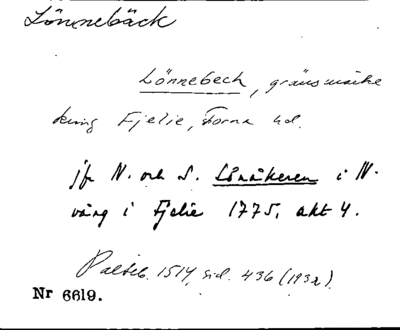 Lönnebäck
Lönnebech, gränsmärke
kring Fjelie, Torna hd.
jfr N. och S. Lönåkeren i N.
vång i Fjelie 1775, akt 4.
1514, sid. 436 (1932).
Nr 6619.